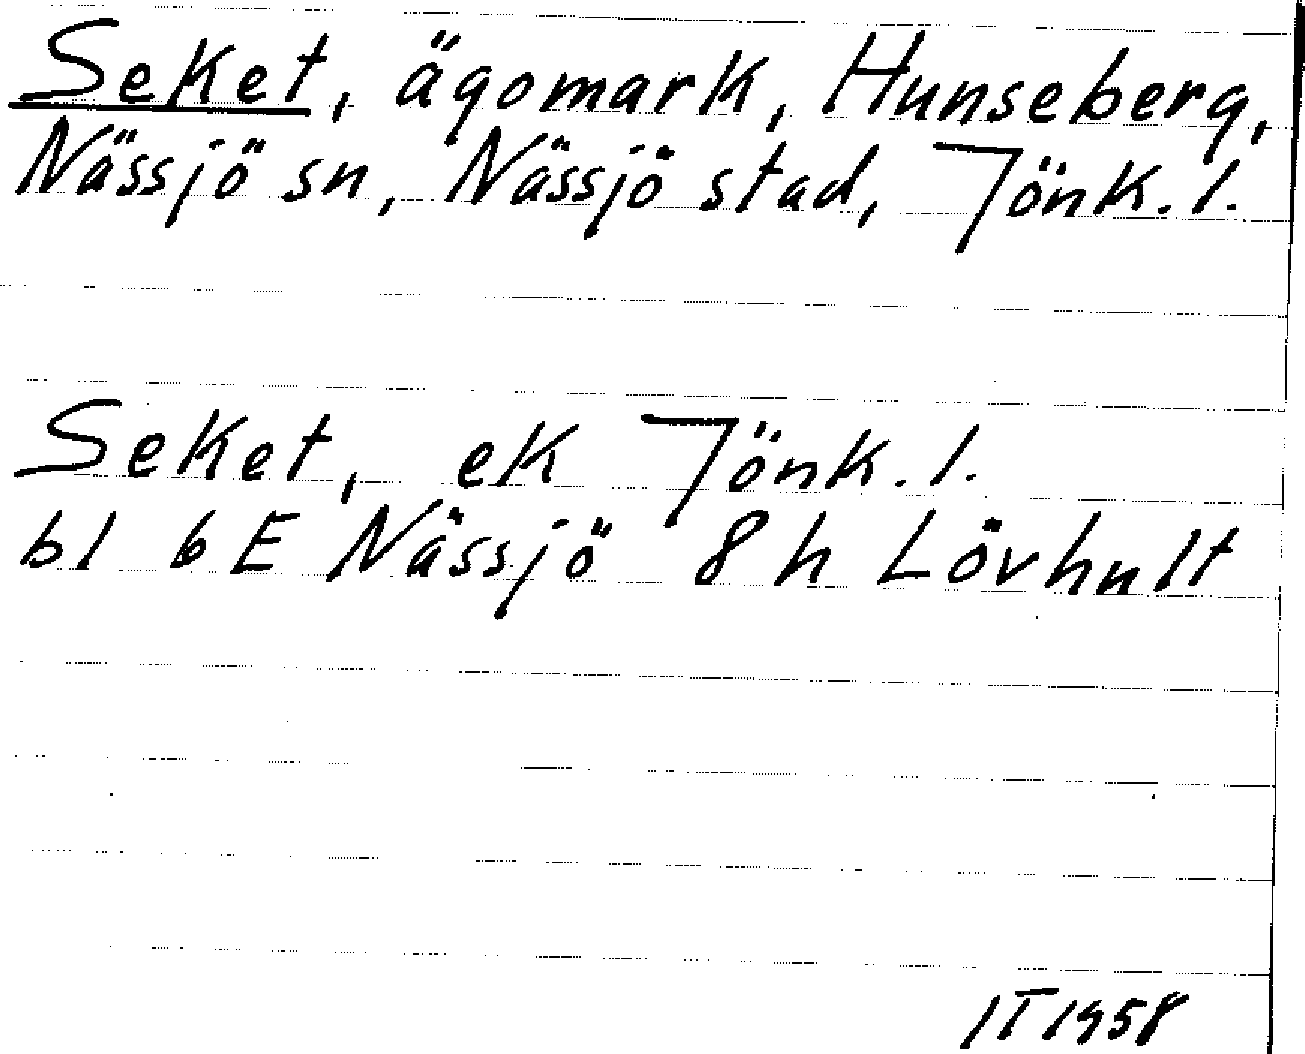 Seket, ägomark, Hunseberg,
Nässjö sn, Nässjö stad, Jönk. l.
Seket, ek Jönk. l.
bl 6 E Nässjö 8 h Lövhult
IT 1958